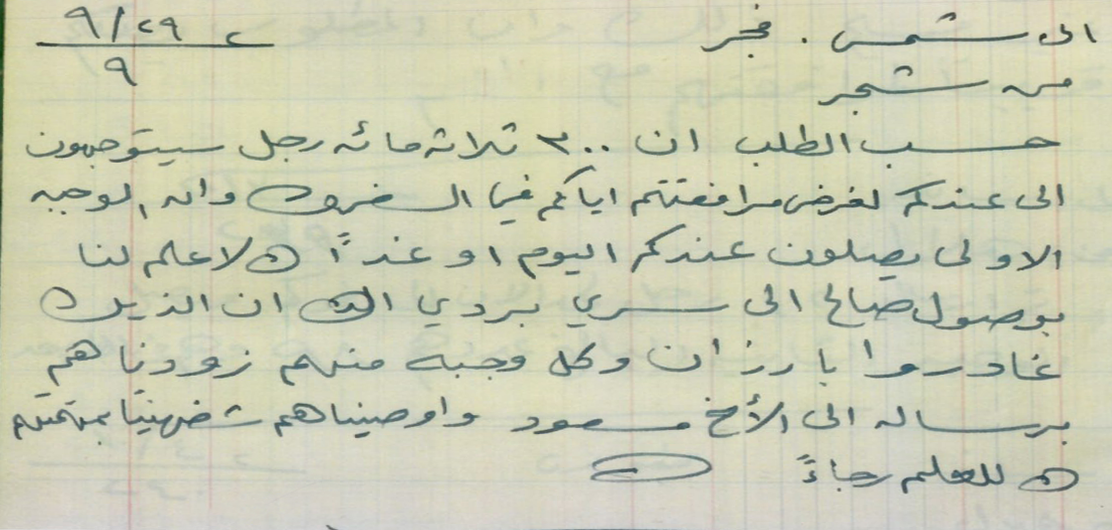 الى شمس . فجر
٢٩/٩ ٢
٩
من شجر
حسب الطلب ان ٣٠٠ ثلاثه مائه رجل سيتوجهون
الى عندكم لغرض مرافقتهم اياكم في السفر وان الوجبه
الاولى يصلون عندكم اليوم او غداً لا علم لنا
بوصول صالح الى سري بردي ان الذين
غادروا بارزان وكل وجبه منهم زودناهم
برساله الى الأخ مسعود واوصيناهم شفهيّا بمهمتهم
للعلم رجاءً